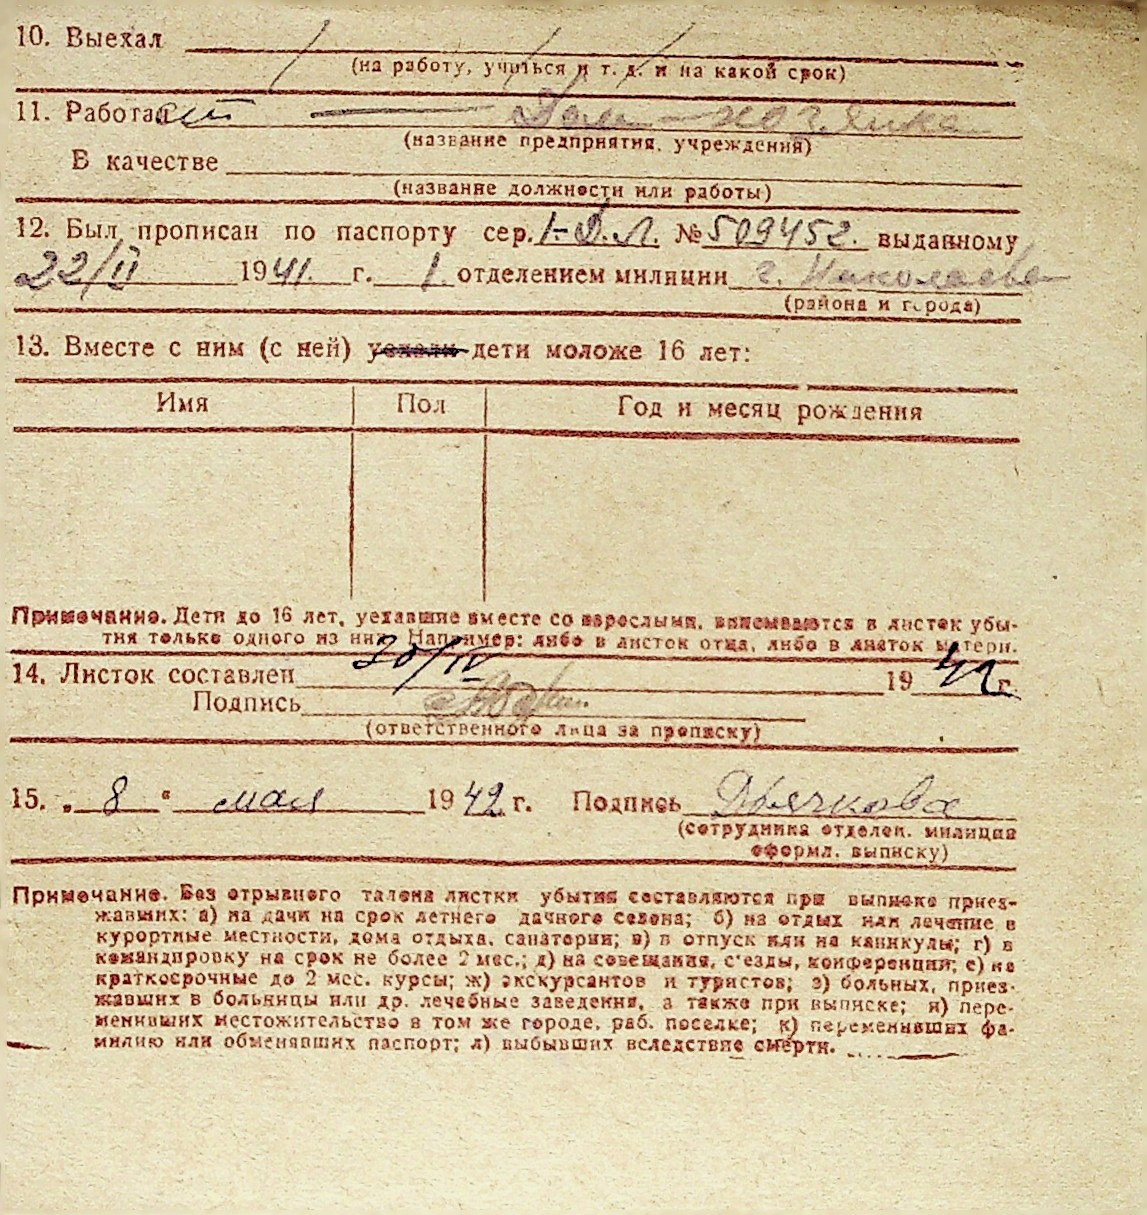 10. Выехал
(на работу, учиться и т. д. и на какой срок)
11. Работает — Дом-хозяйка
(название предприятия, учреждения)
В качестве
(название должности или работы)
12. Был прописан по паспорту сер. I-Д.Л. № 509452. выданному
22/II 1941. г. 1. отделением милиции г. Николаева
(района и города)
13. Вместе с ним (с ней) уехали дети моложе 16 лет:
Имя Пол Год и месяц рождения
Примечание. Дети до 16 лет, уехавшие вместе со взрослыми, вписываются в листок убы-
тия только одного из них. Например: либо в листок отца, либо в листок матери.
14. Листок составлен 30/IV 1942 г.
Подпись
(ответственного лица за прописку)
15. „ 8 “ мая 1942 г. Подпись Дьячкова
(сотрудника отделен. милиции
оформл. выписку)
Примечание. Без отрывного талона листки убытия составляются при выписке приез-
жавших: а) на дачи на срок летнего дачного сезона; б) на отдых или лечение в
курортные местности, дома отдыха, санатории; в) в отпуск или на каникулы; г) в
командировку на срок не более 2 мес.; д) на совещания, с'езды, конференции; е) на
краткосрочные до 2 мес. курсы; ж) экскурсантов и туристов; з) больных, приез-
жавших в больницы или др. лечебные заведения, а также при выписке; и) пере-
менивших местожительство в том же городе, раб. поселке; к) переменивших фа-
милию или обменявших паспорт; л) выбывших вследствие смерти.